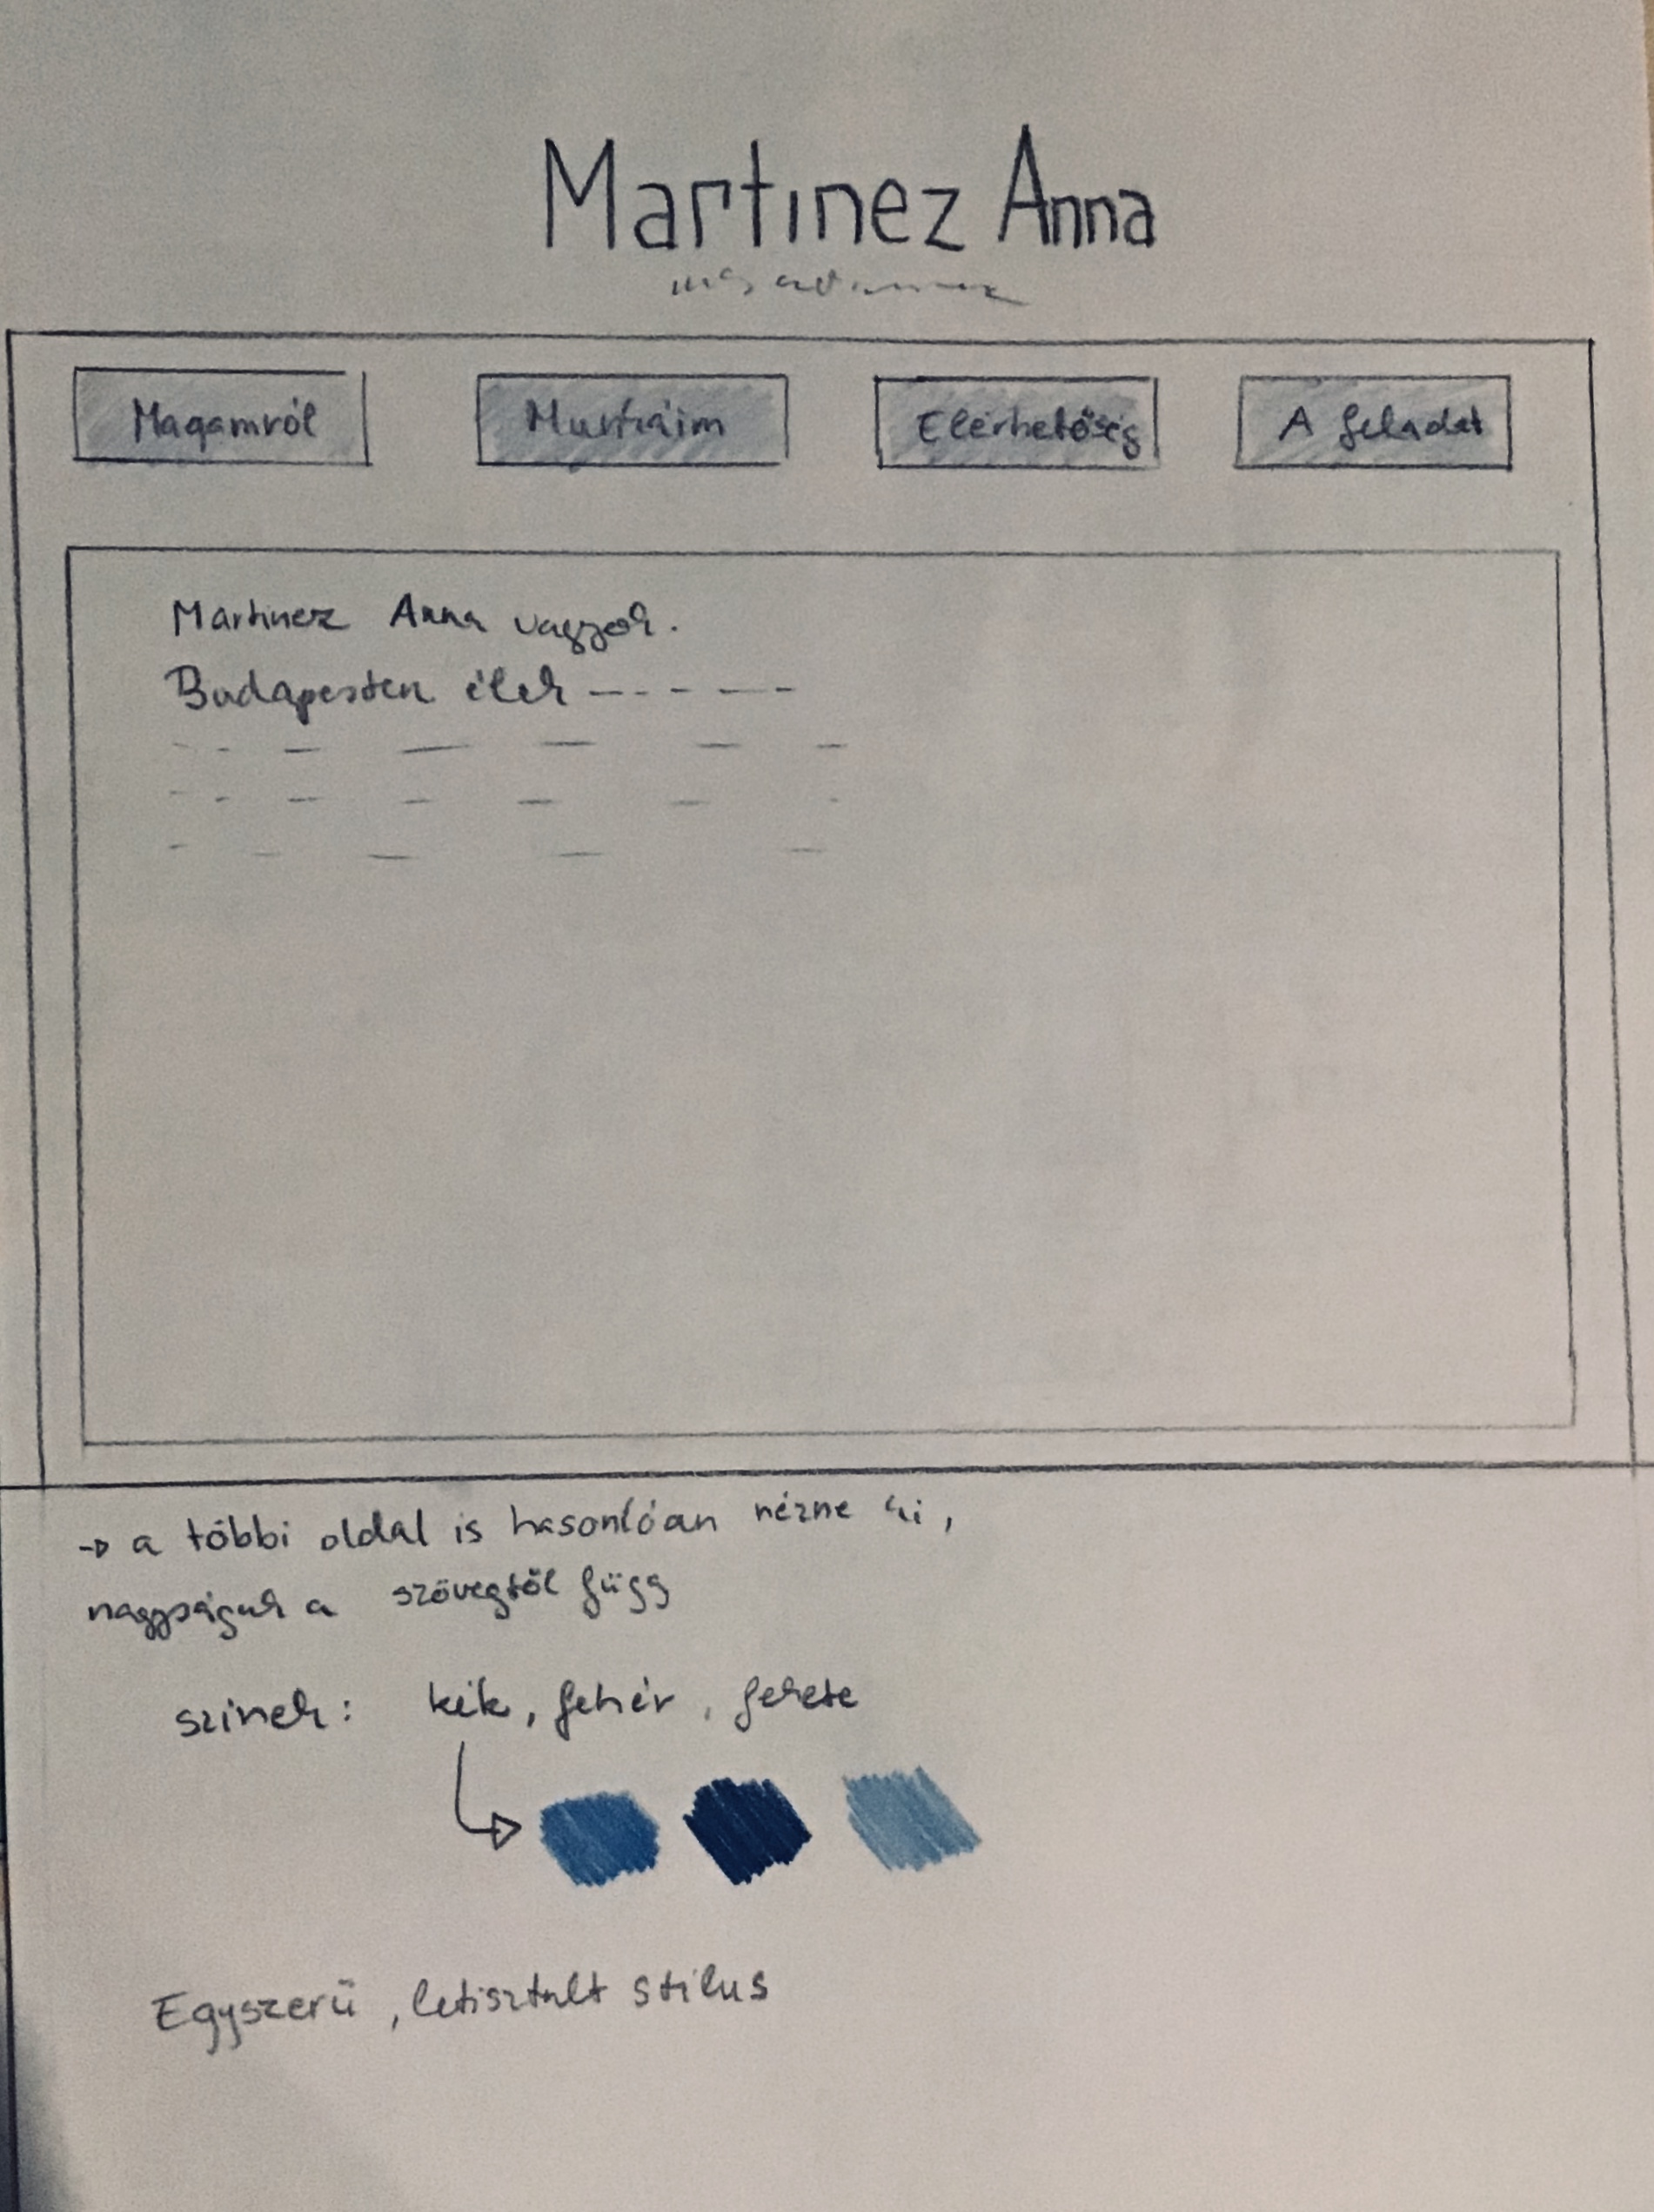 Martinez Anna
Magamról
Munkáim
Elérhetőség
A feladat
Martinez Anna vagyok.
Budapesten élek -----
→ a többi oldal is hasonlóan nézne ki,
nagyságuk a szövegtől függ
színek: kék, fehér, fekete
Egyszerű, letisztult stílus